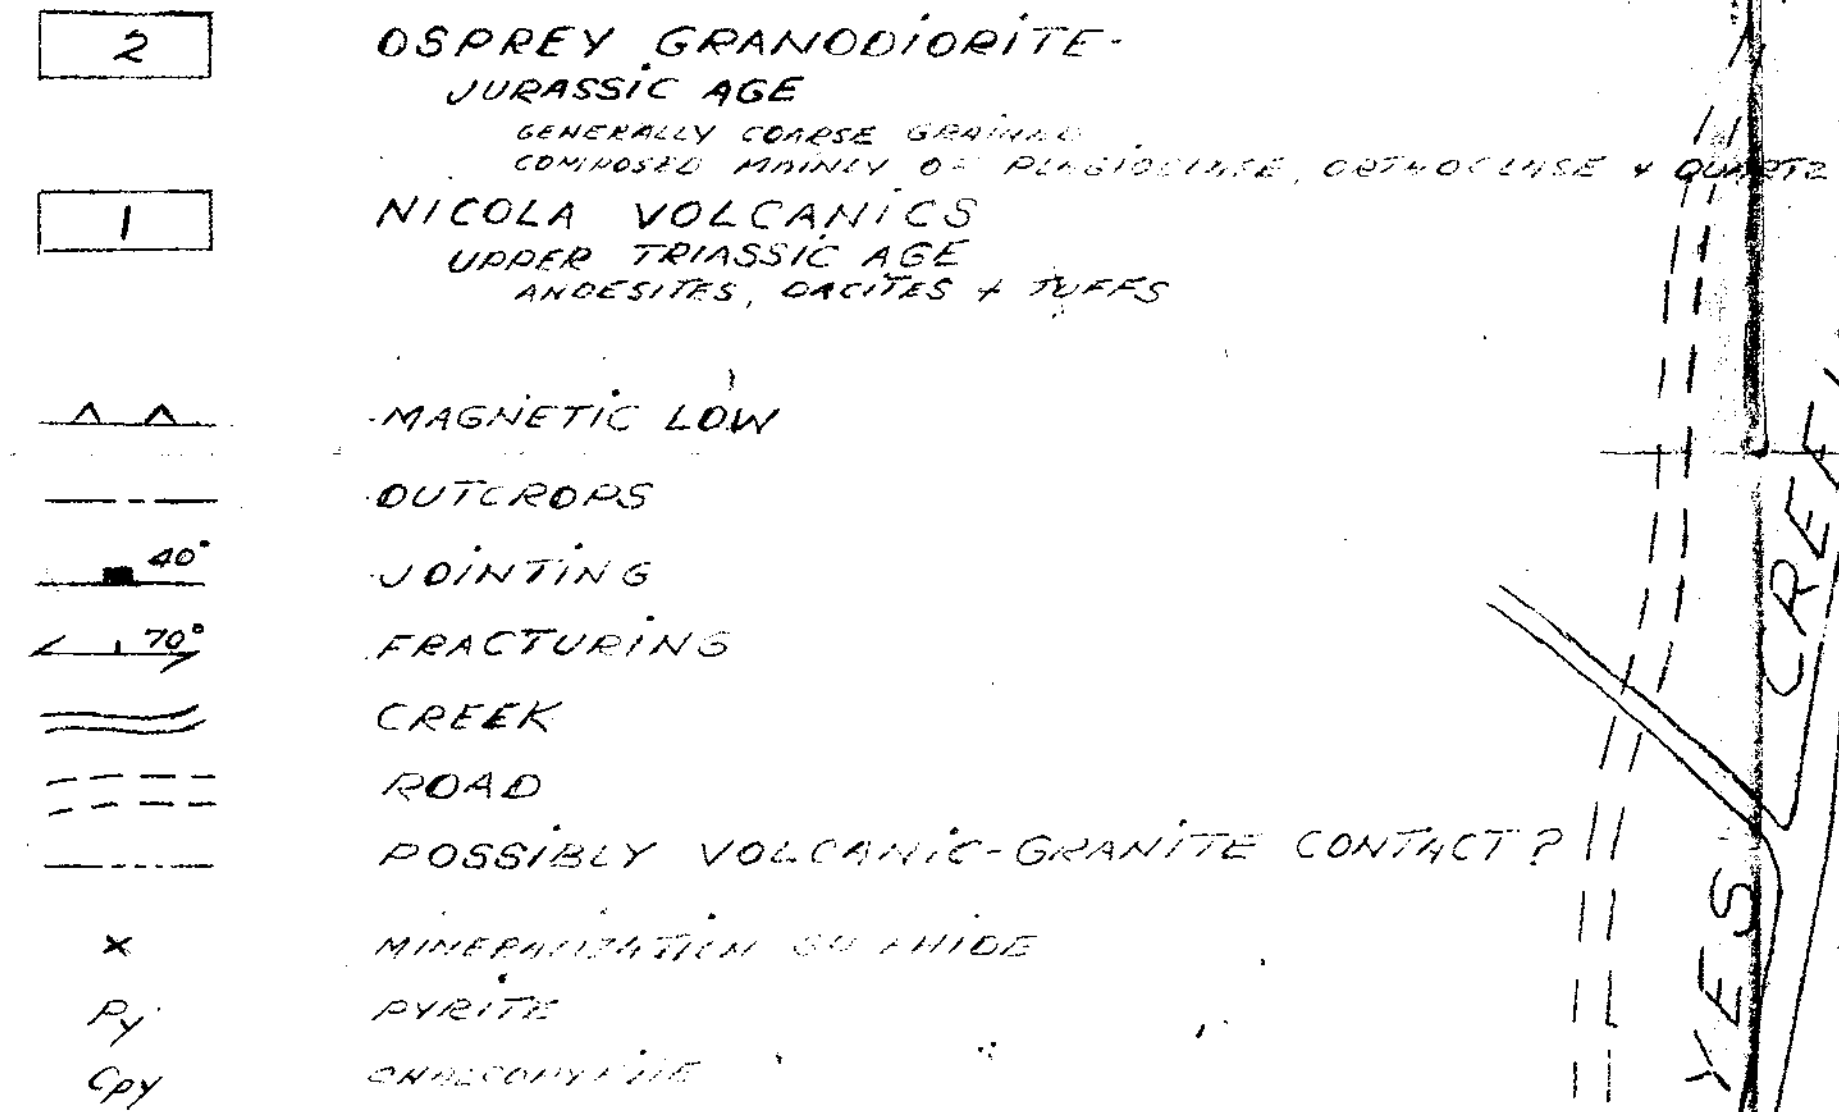 2 OSPREY GRANODIORITE-
JURASSIC AGE
GENERALLY COARSE GRAINED
COMPOSED MAINLY OF PLAGIOCLASE, ORTHOCLASE + QUARTZ
1 NICOLA VOLCANICS
UPPER TRIASSIC AGE
ANDESITES, DACITES + TUFFS
MAGNETIC LOW
OUTCROPS
40° JOINTING
70° FRACTURING
CREEK
ROAD
POSSIBLY VOLCANIC-GRANITE CONTACT?
x MINERALIZATION SULPHIDE
Py PYRITE
Cpy CHALCOPYRITE
YES